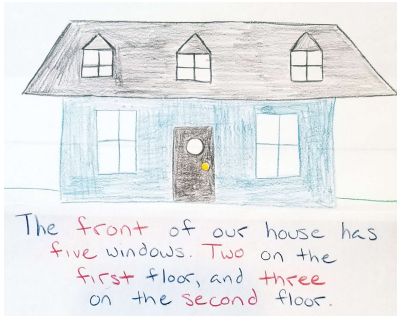 The front of our house has
five windows. Two on the
first floor, and three
on the second floor.